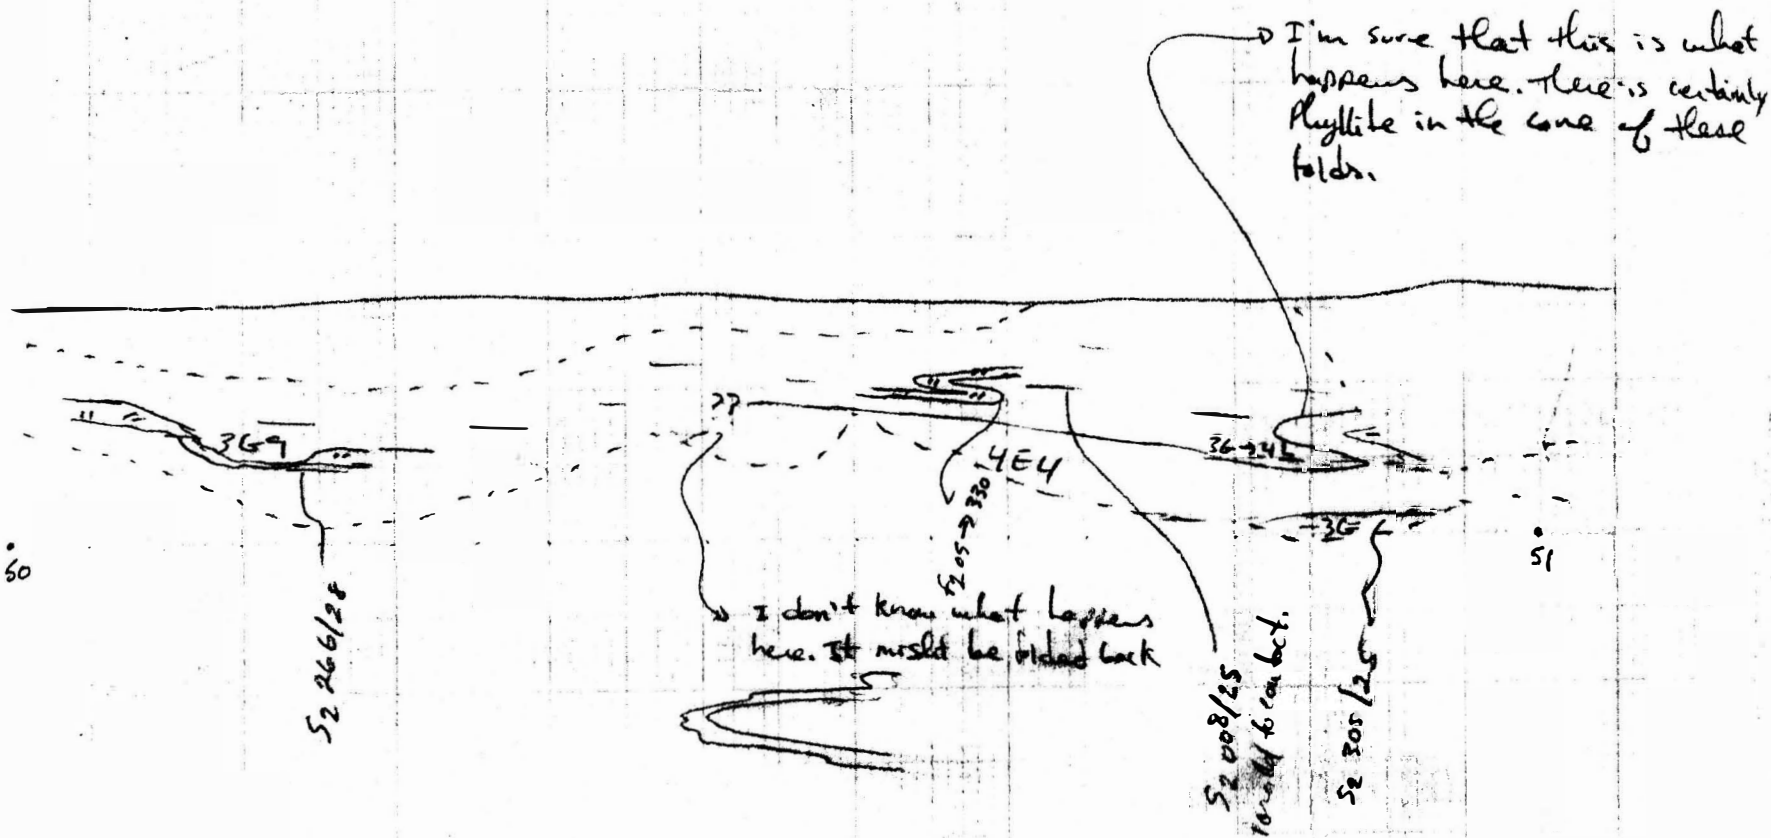 I'm sure that this is what
happens here. There is certainly
Phyllite in the core of these
folds.
??
3G9
4E4
3G→4E
3G
50
51
S2 266/28
S2 05→330
I don't know what happens
here. It might be folded back
S2 008/25
Parallel to contact.
S2 305/25